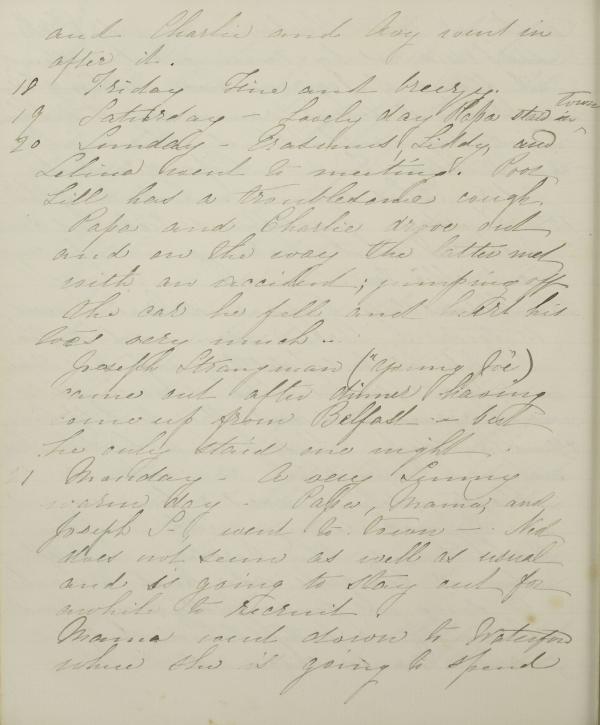 and Charlie and Avy went in
after it.
18 Friday Fine and breezy.
19 Saturday - Lovely day Papa staid in town
20 Sunday - Erasmus, Liddy, and
Lelina went to meeting. Poor
Lill has a troublesome cough.
Papa and Charlie drove out
and on the way the latter met
with an accident; jumping off
the car he fell and hurt his
toes very much ..
Joseph Strangman ("Young Joe")
came out after dinner having
come up from Belfast - but
he only staid one night.
21 Monday - A very sunny
warm day - Papa, Mama, and
Joseph S- went to town -. Ned
does not seem as well as usual
and is going to stay out for
awhile to recruit.
Mama went down to Waterford
where she is going to spend